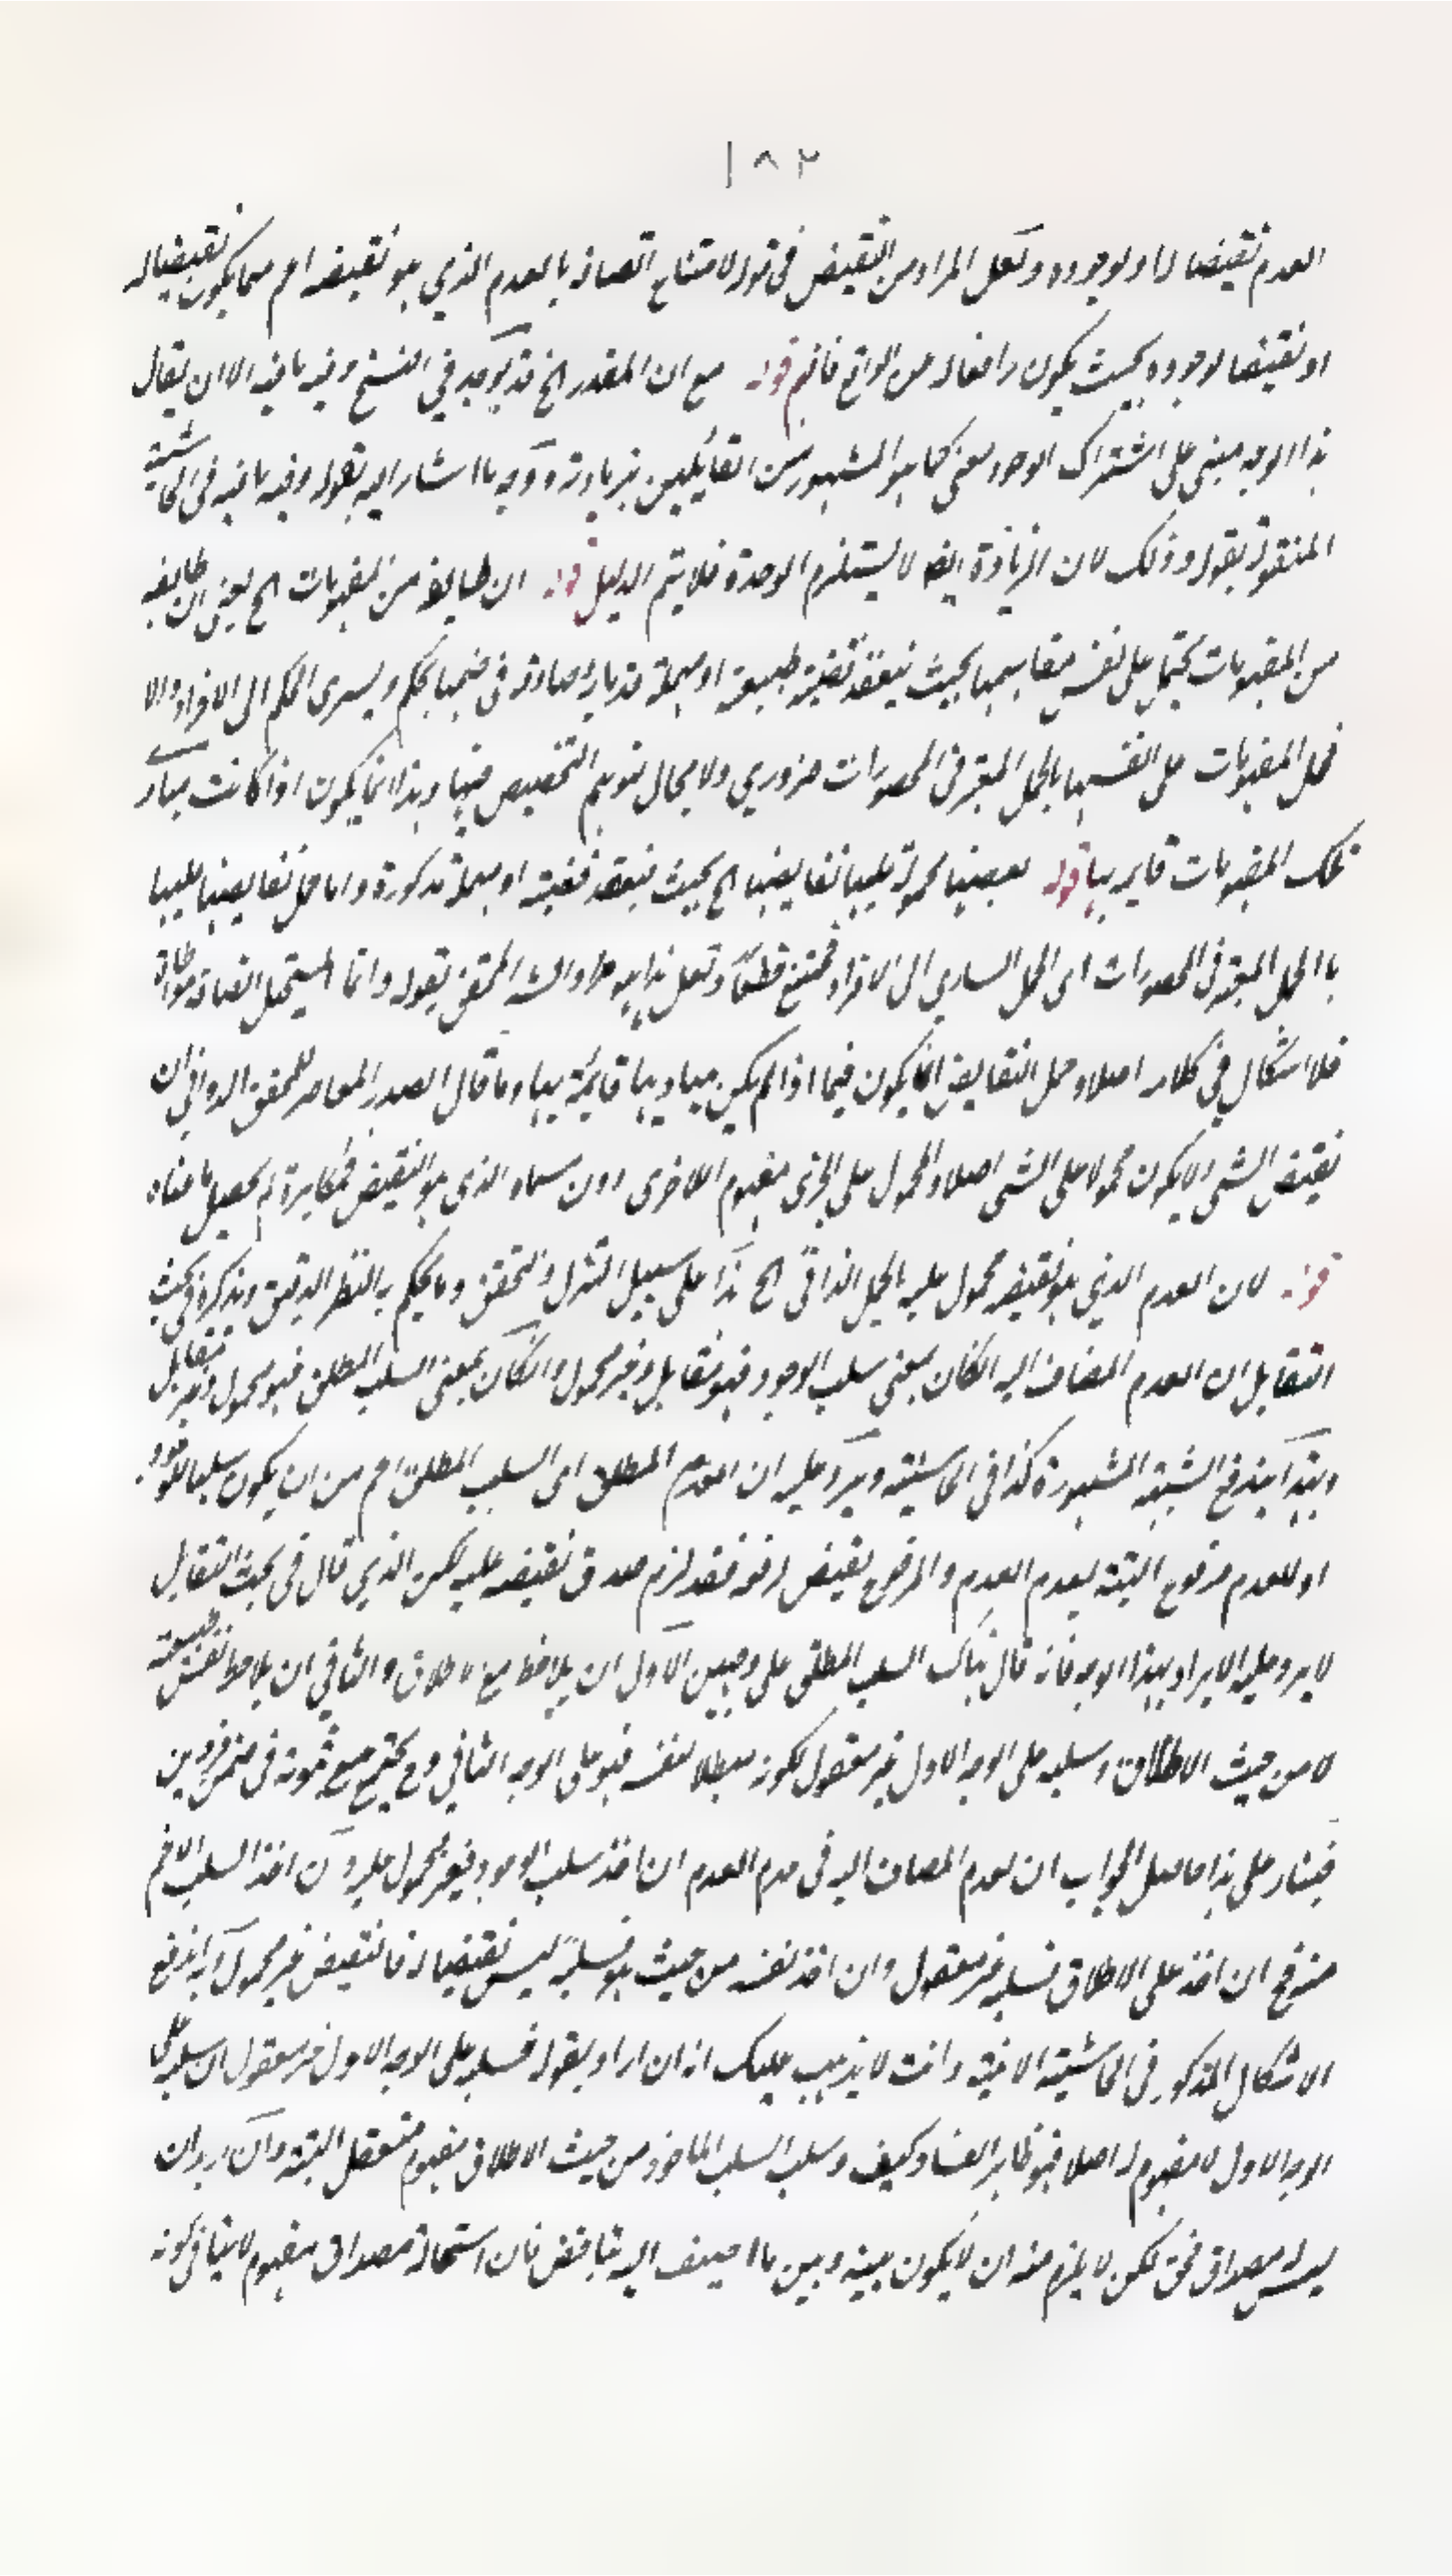 ١٨٢
العدم نقيضا له او لوجوده ولعل المراد من النقيض فى قوله لامتناع اتصافه بالعدم الذي هو نقيضه اعم مما يكون نقيضا له
او نقيضا لوجوده بحيث يكون رافعا له من الواقع فافهم قوله مع ان المقدر الخ قد يوجد في النسخ وفيه ما فيه الا ان يقال
هذا الوجه مبنى على اشتراك الوجود معنى كما هو المشهور من القائلين بزيادته ووجه ما اشار اليه بقوله وفيه ما فيه فى الحاشية
المنقولة بقوله وذلك لان الزيادة ايضا لا يستلزم الوحدة فلا يتم الدليل قوله ان طايفة من المفهومات الخ يعنى ان طايفة
من المفهومات يحتمل على نفس بحيث ينعقد قضية طبيعية او مهملة صادقة فى ضمنها بحكم ويسرى الحكم الى الافراد والا
فحمل المفهومات على انفسها بالحمل المعتبر فى المحصورات ضروري ولا مجال لتوهم التخصيص فيها وهذا انما يكون اذا كانت مبادى
تلك المفهومات قايمة بها قوله بعضها محمولة عليها نقايضها الخ بحيث ينعقد قضية او مهملة مذكورة واما حمل نقايضها عليها
بالحمل المعتبر فى المحصورات اى الحمل الساري الى الافراد فممتنع قطعا ولعل هذا هو مراد الشارح المحقق بقوله وانما المستحيل اتصافه مواطاة
فلا اشكال فى كلامه اصلا وحمل النقايض انما يكون فيما اذا لم يكن مباديها قايمة بها وما قال الصدر المعاصر للمحقق الدواني ان
نقيض الشيء لا يكون محمولا على الشيء اصلا والمحمول على الجزئى مفهوم اللاجزئى دون سماه الذي هو النقيض فمكابرة لم يحصل لنا معناه
قوله لان العدم الذي هو نقيضه محمول عليه بالحمل الذاتى الخ هذا على سبيل التنزل والتحقيق وما يحكم به النظر الدقيق ويذكره فى بحث
التقابل ان العدم المضاف اليه ان كان بمعنى سلب الوجود فهو متقابل وغير محمول وان كان بمعنى السلب المطلق فهو محمول وغير متقابل
وبهذا يندفع الشبهة المشهورة كذا فى الحاشية ويرد عليه ان العدم المطلق اى السلب المطلق اعم من ان يكون سلبا للوجود
او للعدم مرفوع البتة بعدم العدم والمرفوع نقيض لرفعه فقد لزم صدق نقيضه عليه لكن الذي قال فى بحث التقابل
لا يرد عليه الايراد بهذا الوجه فانه قال هناك السلب المطلق على وجهين الاول ان يلاحظ مع الاطلاق والثاني ان يلاحظ نفس طبيعته
لا من حيث الاطلاق وسلبه على الوجه الاول غير معقول لكونه مبطلا لنفسه فهو على الوجه الثاني وح يجتمع مع ثبوته فى ضمن فردين
فبناء على هذا حاصل الجواب ان العدم المضاف اليه فى عدم العدم ان اخذ سلب الوجود فغير محمول عليه وان اخذ السلب الاعم
فندفع ان اخذ على الاطلاق فسلبه غير معقول وان اخذ نفسه من حيث هو فسلبه ليس نقيضا له فالنقيض غير محمول وبه اندفع
الاشكال المذكور فى الحاشية الاتية وانت لا يذهب عليك انه ان اراد بقوله فسلبه على الوجه الاول غير معقول ان سلبه على
الوجه الاول لا مفهوم له اصلا فهو ظاهر الفساد كيف وسلب السلب الماخوذ من حيث الاطلاق مفهوم متعقل البتة وان اريد ان
ليس له مصداق فحق لكن لا يلزم منه ان لا يكون بينه وبين ما اضيف اليه تناقض فان استحالة مصداق مفهوم لا ينافي كونه